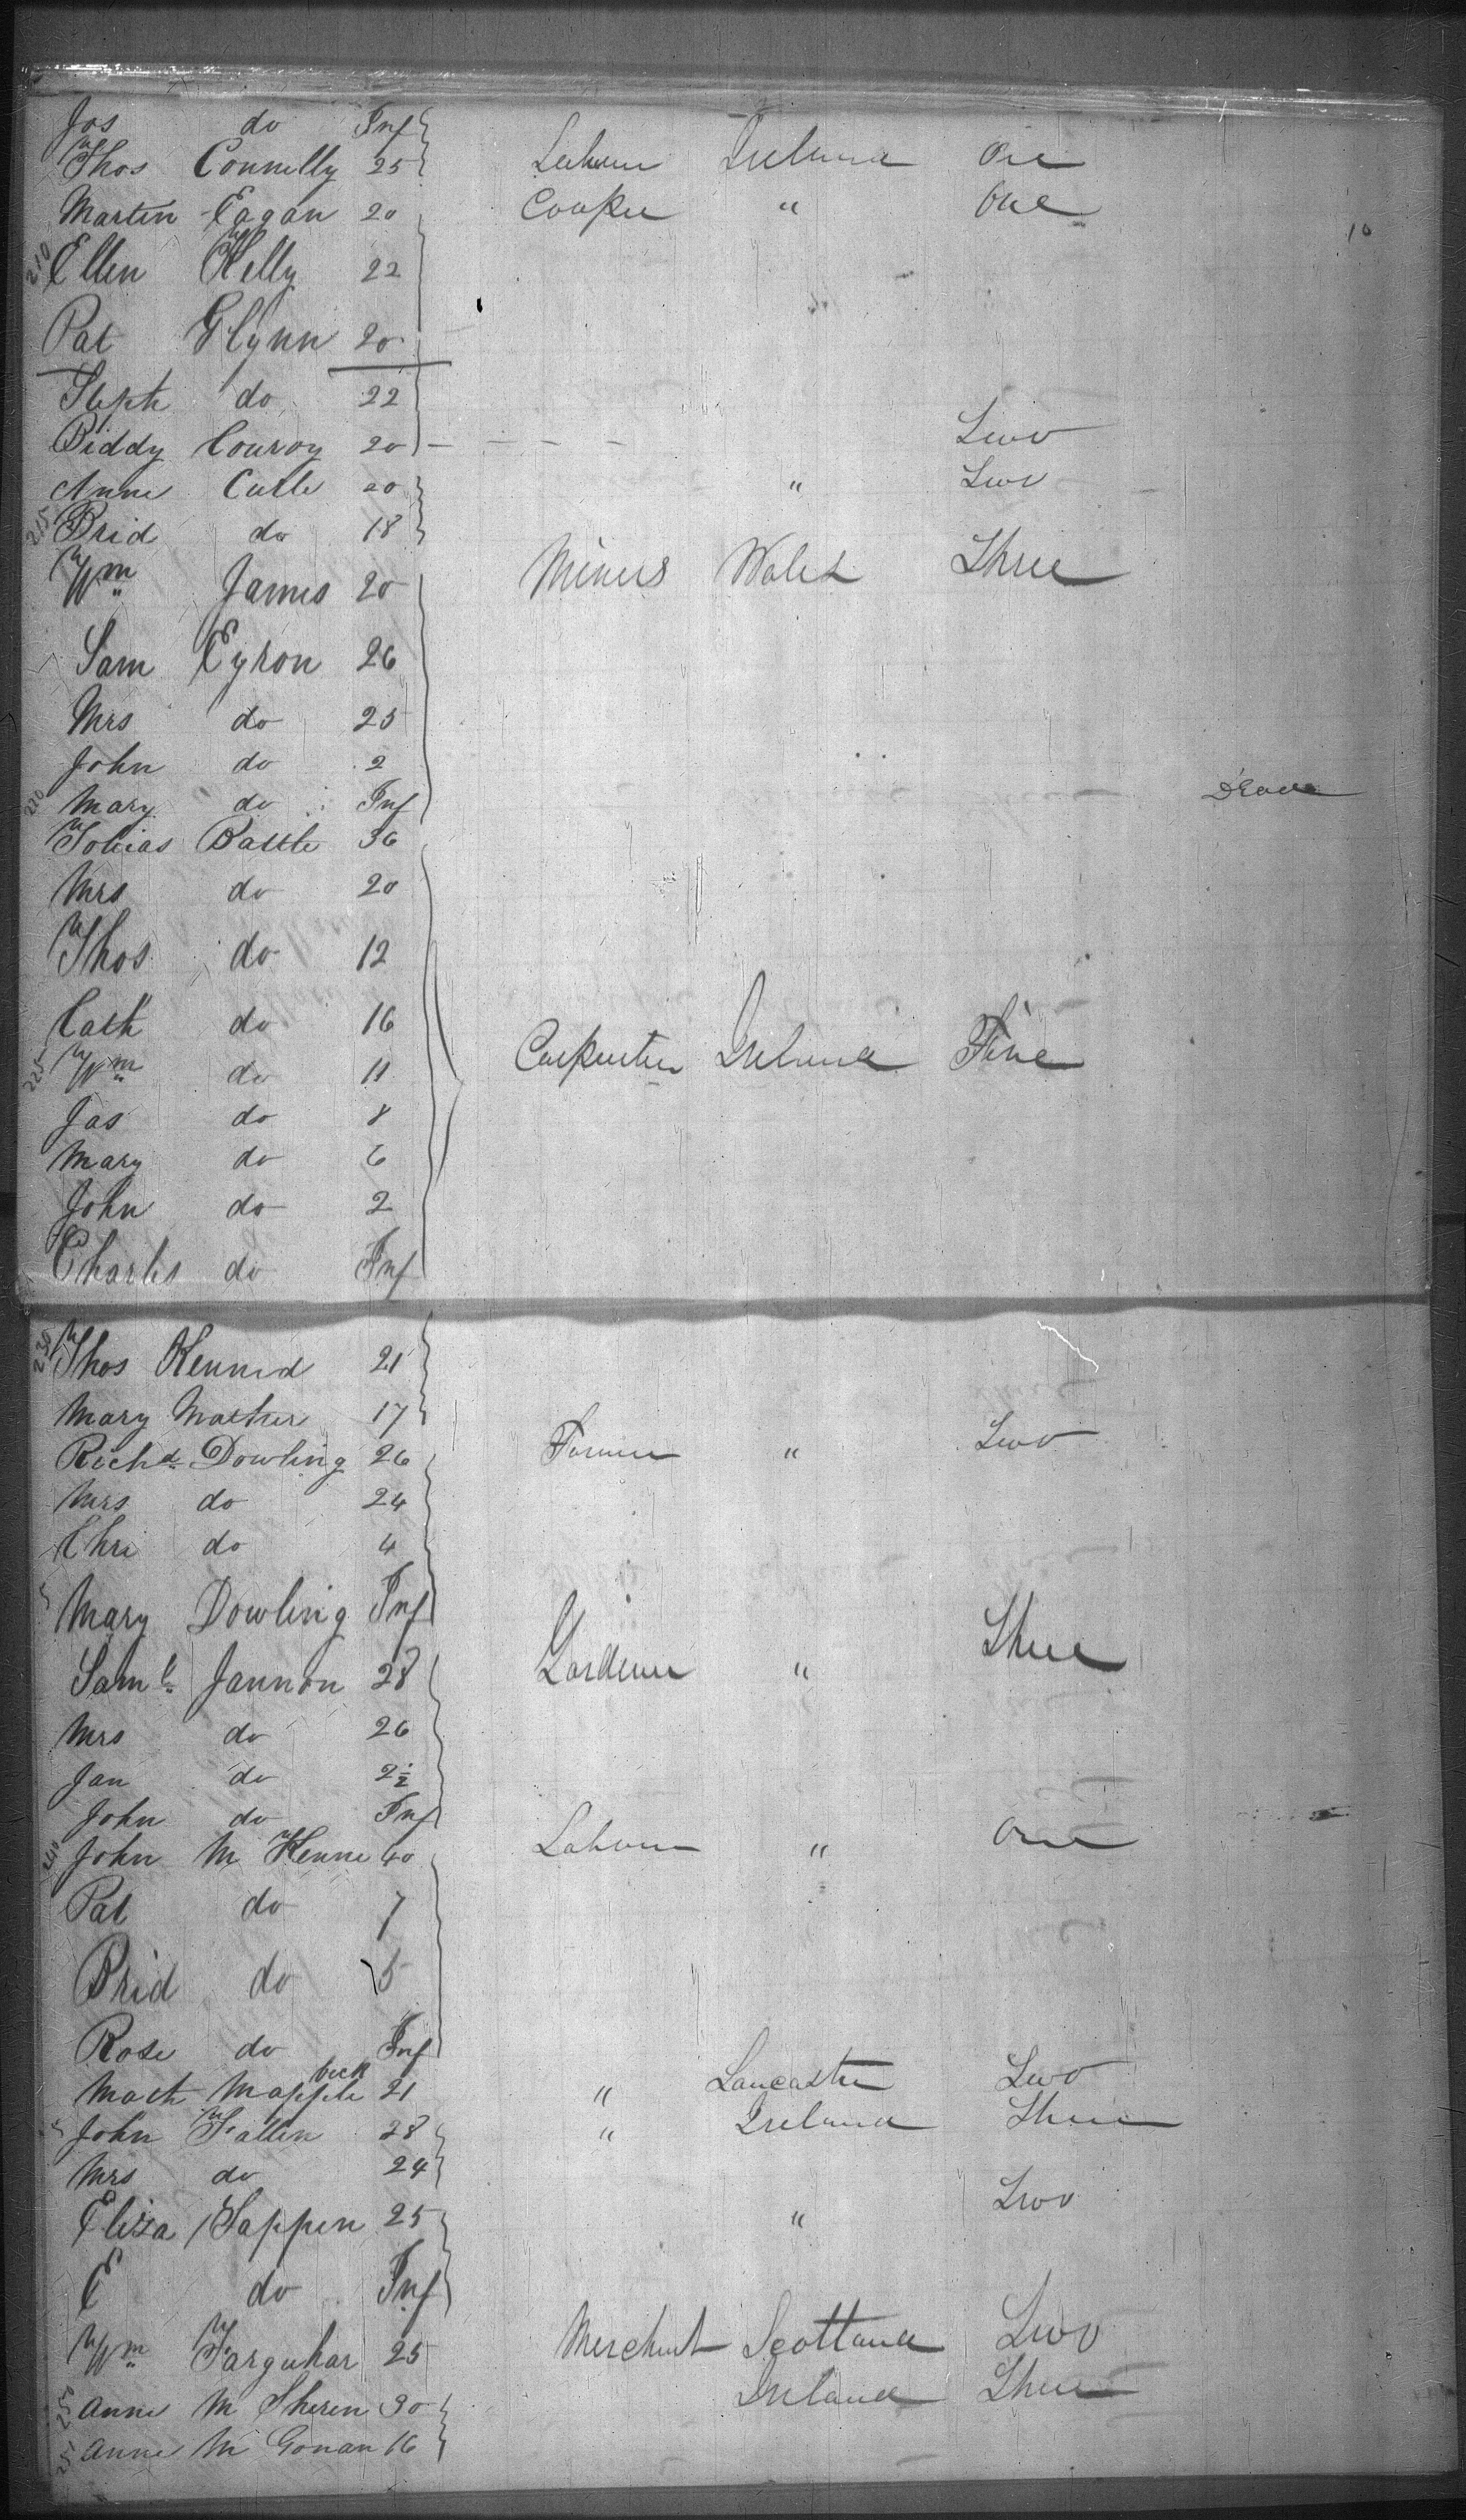 Jos do Inf
Thos Connelly 25 Labourer Ireland One
Martin Eagan 20 Cooper " One
10
210 Ellen Kelly 22
Pat Glynn 20
Steph do 22
Biddy Conroy 20 Two
Anne Curle 20 " Two
215 Brid do 18
Wm James 20 Miners Wales Three
Sam Eyron 26
Mrs do 25
John do 2
220 Mary do Inf Dead
Tobias Battle 36
Mrs do 20
Thos do 12
Cath do 16
225 Wm do 11 Carpenter Ireland Five
Jas do 8
Mary do 6
John do 2
Charles do Inf
230 Thos Kenned 21
Mary Mather 17
Richd Dowling 26 Farmer " Two
Mrs do 24
Chri do 4
5 Mary Dowling Inf
Saml Jannon 28 Gardener " Three
Mrs do 26
Jan do 2½
John do Inf
240 John M Kenne 40 Labourer " One
Pat do 7
Brid do 5
Rose do Inf
Math Mapplebeck 21 " Lancaster Two
5 John Fallen 28 " Ireland Three
Mrs do 24
Eliza Tappen 25 " Two
E do Inf
Wm Farquhar 25 Merchant Scotland Two
250 Anne M Sheren 30 Ireland Three
251 Anne M Gonan 16